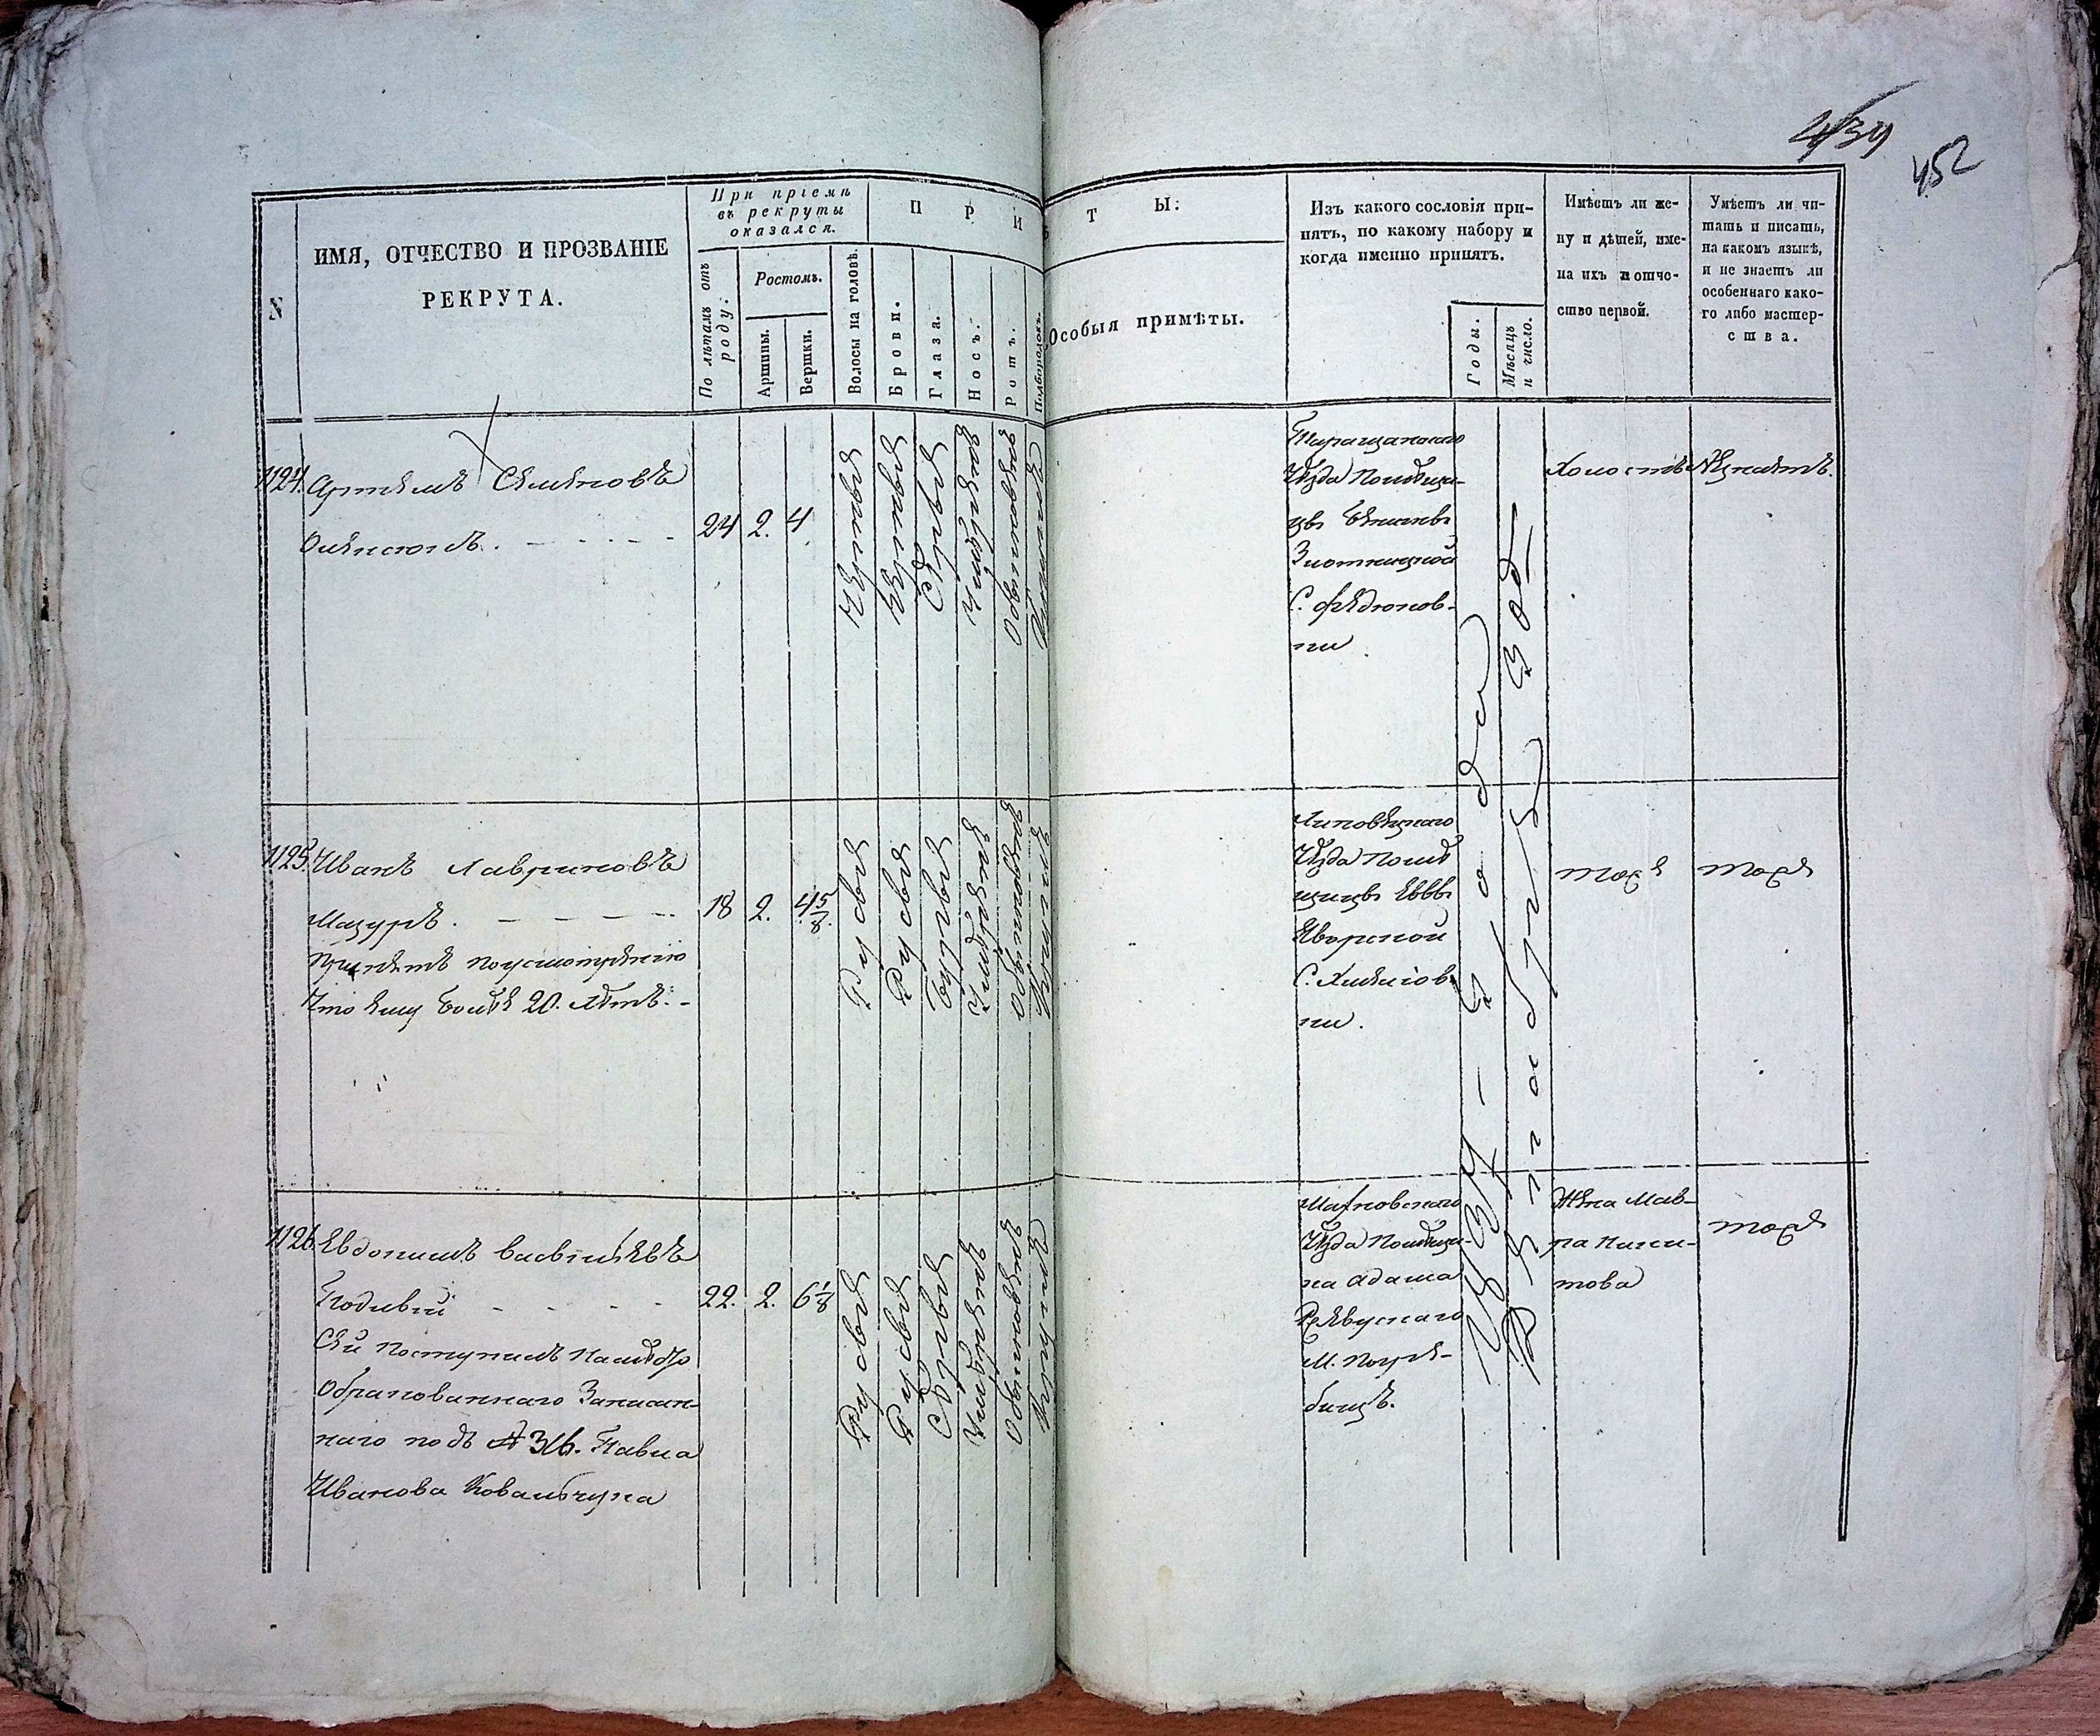 439
452
N
ИМЯ, ОТЧЕСТВО И ПРОЗВАНІЕ
РЕКРУТА.
При пріемѣ
въ рекруты
оказался.
По лѣтамъ отъ
роду:
Ростомъ.
Аршины.
Вершки.
ПРИМѢТЫ:
Волосы на головѣ.
Брови.
Глаза.
Носъ:
Ротъ:
Подбородокъ.
Особыя примѣты.
Изъ какого сословія при-
нятъ, по какому набору и
когда именно принятъ.
Годы.
Мѣсяцъ
и число.
Имѣетъ ли же-
ну и дѣтей, име-
на ихъ и отче-
ство первой.
Умѣетъ ли чи-
тать и писать,
на какомъ языкѣ,
и не знаетъ ли
особеннаго како-
го либо мастер-
ства.
1124. Артемъ Семеновъ
24 2. 4
Сѣрые
Обыкновенный
Таращанскаго
Уѣзда Помѣщи-
цы
С. Федюков-
ки
Холостъ
Незнаетъ.
1125. Иванъ Лавриновъ
Мазуръ.
Принятъ поусмотрѣнію
Что ему болѣе 20. лѣтъ.
18 2. 4 5/8.
Русые
Русые
Умѣренный
Обыкновенный
Круглый
Липовецкаго
Уѣзда Помѣ
щицы Еввы
Яворской
ки.
тоже
тоже
1126. Евдокимъ Васильевъ
Сей поступилъ намѣсто
обракованнаго Записан-
наго подъ № Павла
Иванова Ковальчука
22. 2. 6 1/8
Русые
Русые
Сѣрые
Умѣренный
Обыкновенный
Круглый
Махновскаго
Уѣзда Помѣщи-
ка Адама
Ржевускаго
М. Погре-
бищъ.
Жена Мав-
ра Ники-
това
тоже
1834 - года
Декабря 30й